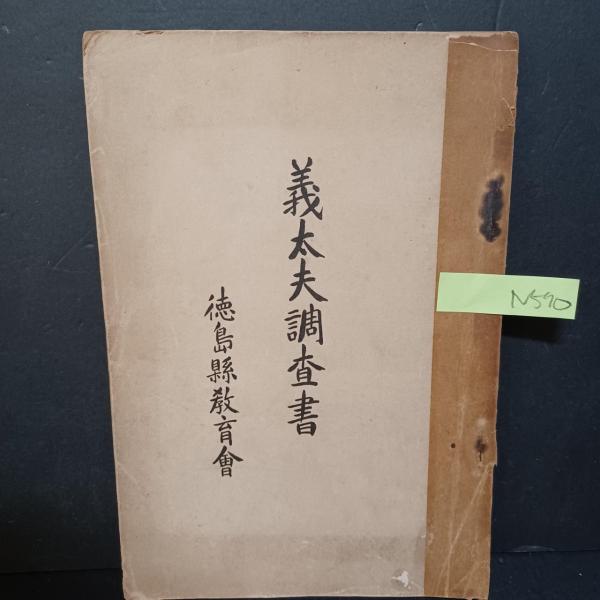 義太夫調査書
徳島縣教育會
N590